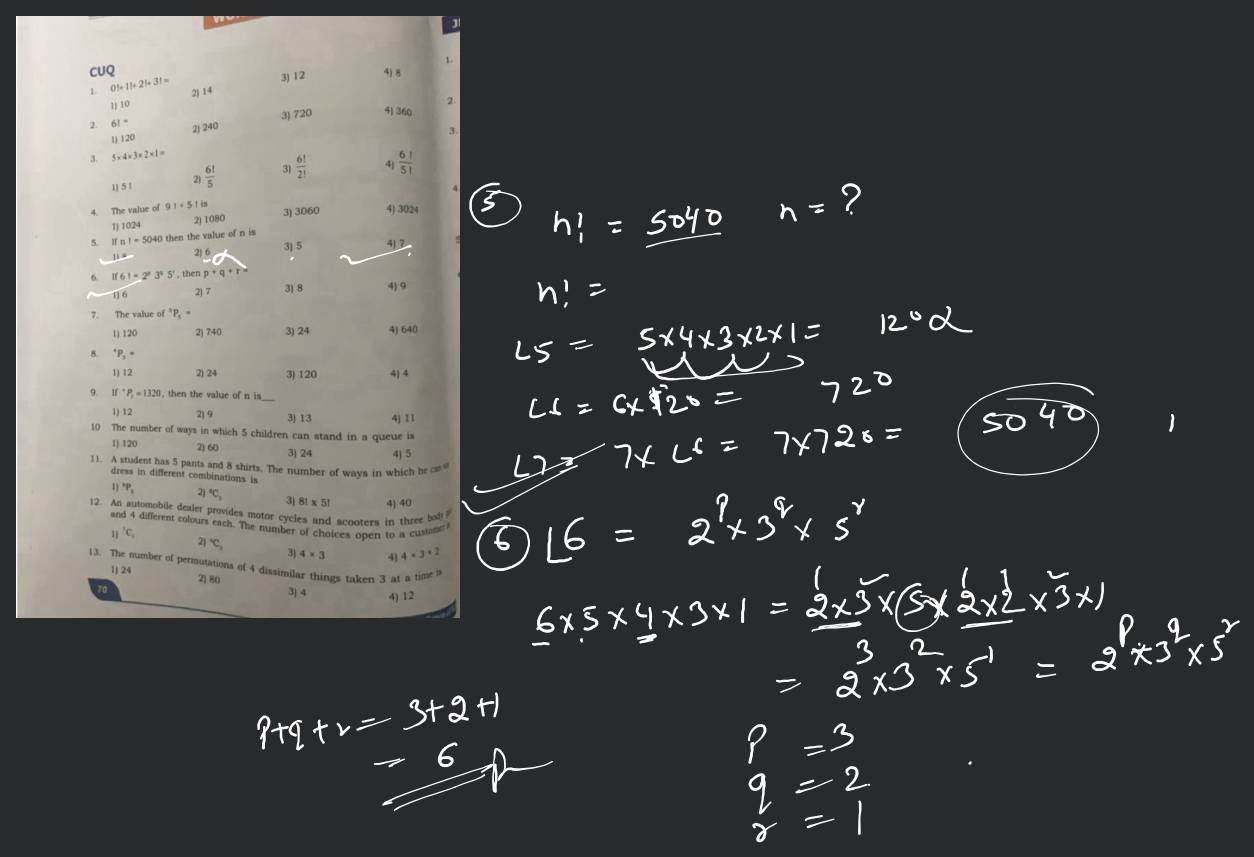 CUQ
1. 0!+1!+2!+3! =
1) 10 2) 14 3) 12 4) 8
2. 6! =
1) 120 2) 240 3) 720 4) 360
3. 5×4×3×2×1=
1) 5! 2) 6!/5 3) 6!/2! 4) 6!/5!
4. The value of 9! ÷ 5! is
1) 1024 2) 1080 3) 3060 4) 3024
5. If n! = 5040 then the value of n is
2) 6 3) 5 4) 7
6. If 6! = 2^p 3^q 5^r, then p + q + r =
1) 6 2) 7 3) 8 4) 9
7. The value of ⁵P₅ =
1) 120 2) 740 3) 24 4) 640
8. ⁴P₃ =
1) 12 2) 24 3) 120 4) 4
9. =1320, then the value of n is__
1) 12 2) 9 3) 13 4) 11
10 The number of ways in which 5 children can stand in a queue is
1) 120 2) 60 3) 24 4) 5
11. A student has 5 pants and 8 shirts. The number of ways in which he can
dress in different combinations is
3) 8! x 5! 4) 40
12. An automobile dealer provides motor cycles and scooters in three body
and 4 different colours each. The number of choices open to a customer
3) 4 × 3 4) 4 × 3 × 2
13. The number of permutations of 4 dissimilar things taken 3 at a time is
1) 24 2) 80 3) 4 4) 12
70
5 n! = 5040 n = ?
n! =
∟5 = 5×4×3×2×1 = 120
∟6 = 6×120 = 720
∟7 = 7×∟6 = 7×720 = 5040
6 ∟6 = 2^p × 3^q × 5^r
6×5×4×3×1 = 2×3×5×2×2×3×1
= 2^3 × 3^2 × 5^1 = 2^p × 3^q × 5^r
p+q+r = 3+2+1
= 6
p = 3
q = 2
r = 1